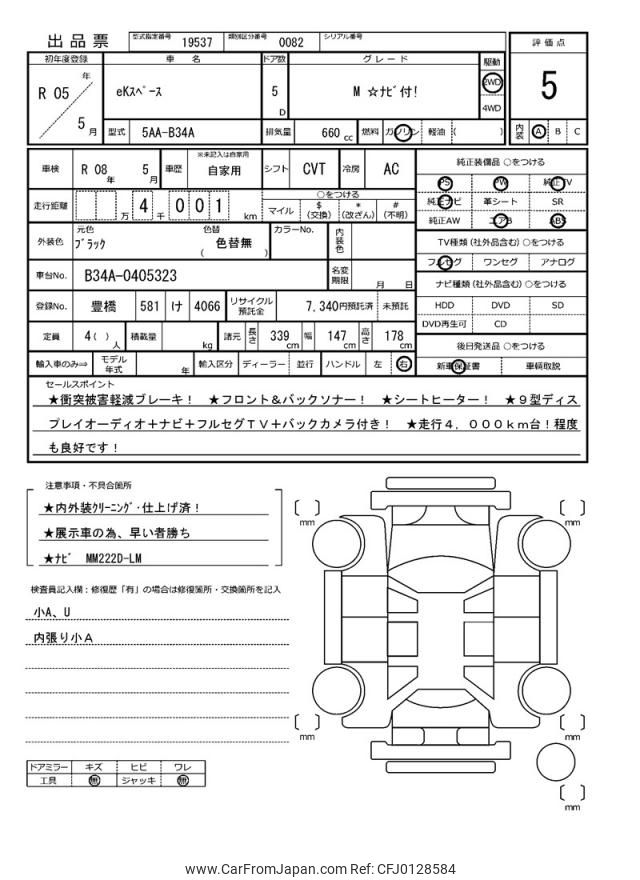 出品票 型式指定番号 19537 類別区分番号 0082 シリアル番号
評価点
5
内装 A B C
初年度登録 車名 ドア数 グレード 駆動
R 05 年 5 月
eKｽﾍﾟｰｽ 5 D M ☆ﾅﾋﾞ付!
2WD
4WD
型式 5AA-B34A 排気量 660 cc 燃料 ガソリン 軽油 ( )
車検 R 08 年 5 月 車歴 ※未記入は自家用 自家用 シフト CVT 冷房 AC
走行距離 万 4 千 0 0 1 km
○をつける
マイル $ (交換) * (改ざん) # (不明)
外装色 元色 ﾌﾞﾗｯｸ 色替 ( 色替無 ) カラーNo. 内装色
車台No. B34A-0405323 名変期限 月 日
登録No. 豊橋 581 け 4066 リサイクル預託金 7,340円預託済 未預託
定員 4( ) 人 積載量 kg 諸元 長さ 339 cm 幅 147 cm 高さ 178 cm
輸入車のみ⇒ モデル年式 年 輸入区分 ディーラー 並行 ハンドル 左 右
純正装備品 ○をつける
PS PW 純正TV
純正ナビ 革シート SR
純正AW エアB ABS
TV種類 (社外品含む) ○をつける
フルセグ ワンセグ アナログ
ナビ種類 (社外品含む) ○をつける
HDD DVD SD
DVD再生可 CD
後日発送品 ○をつける
新車保証書 車輌取説
セールスポイント
★衝突被害軽減ブレーキ！　★フロント＆バックソナー！　★シートヒーター！　★９型ディス
プレイオーディオ＋ナビ＋フルセグＴＶ＋バックカメラ付き！　★走行４，０００ｋｍ台！程度
も良好です！
注意事項・不具合箇所
★内外装ｸﾘｰﾆﾝｸﾞ･仕上げ済！
★展示車の為、早い者勝ち
★ﾅﾋﾞ　MM222D-LM
検査員記入欄：修復歴「有」の場合は修復箇所・交換箇所を記入
小A、U
内張り小Ａ
ドアミラー キズ ヒビ ワレ
工具 無 ジャッキ 無
mm
mm
mm
mm
mm
www.CarFromJapan.com Ref: CFJ0128584